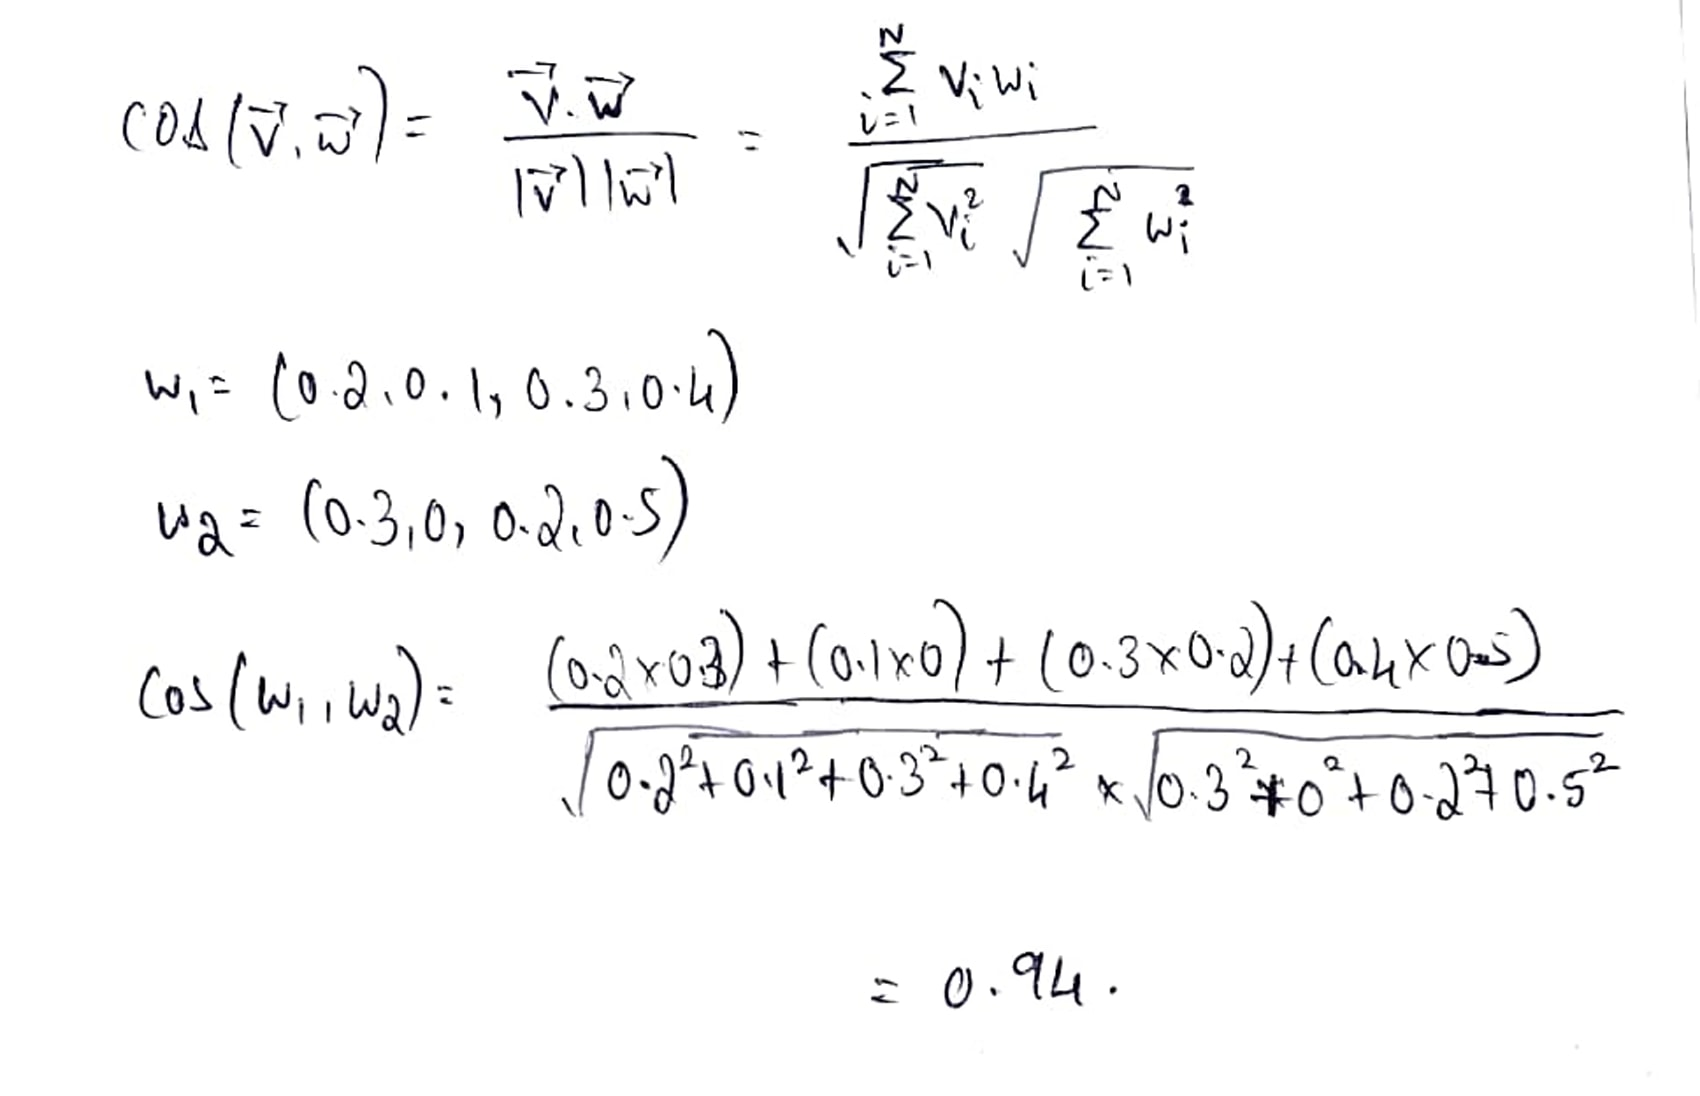 cos(v⃗, w⃗) = v⃗.w⃗ / |v⃗||w⃗| = Σ_{i=1}^{N} v_i w_i / √(Σ_{i=1}^{N} v_i²) √(Σ_{i=1}^{N} w_i²)
w₁ = (0.2, 0.1, 0.3, 0.4)
w₂ = (0.3, 0, 0.2, 0.5)
cos(w₁, w₂) = (0.2×0.3) + (0.1×0) + (0.3×0.2) + (0.4×0.5) / √(0.2² + 0.1² + 0.3² + 0.4²) × √(0.3² + 0² + 0.2² + 0.5²)
= 0.94.